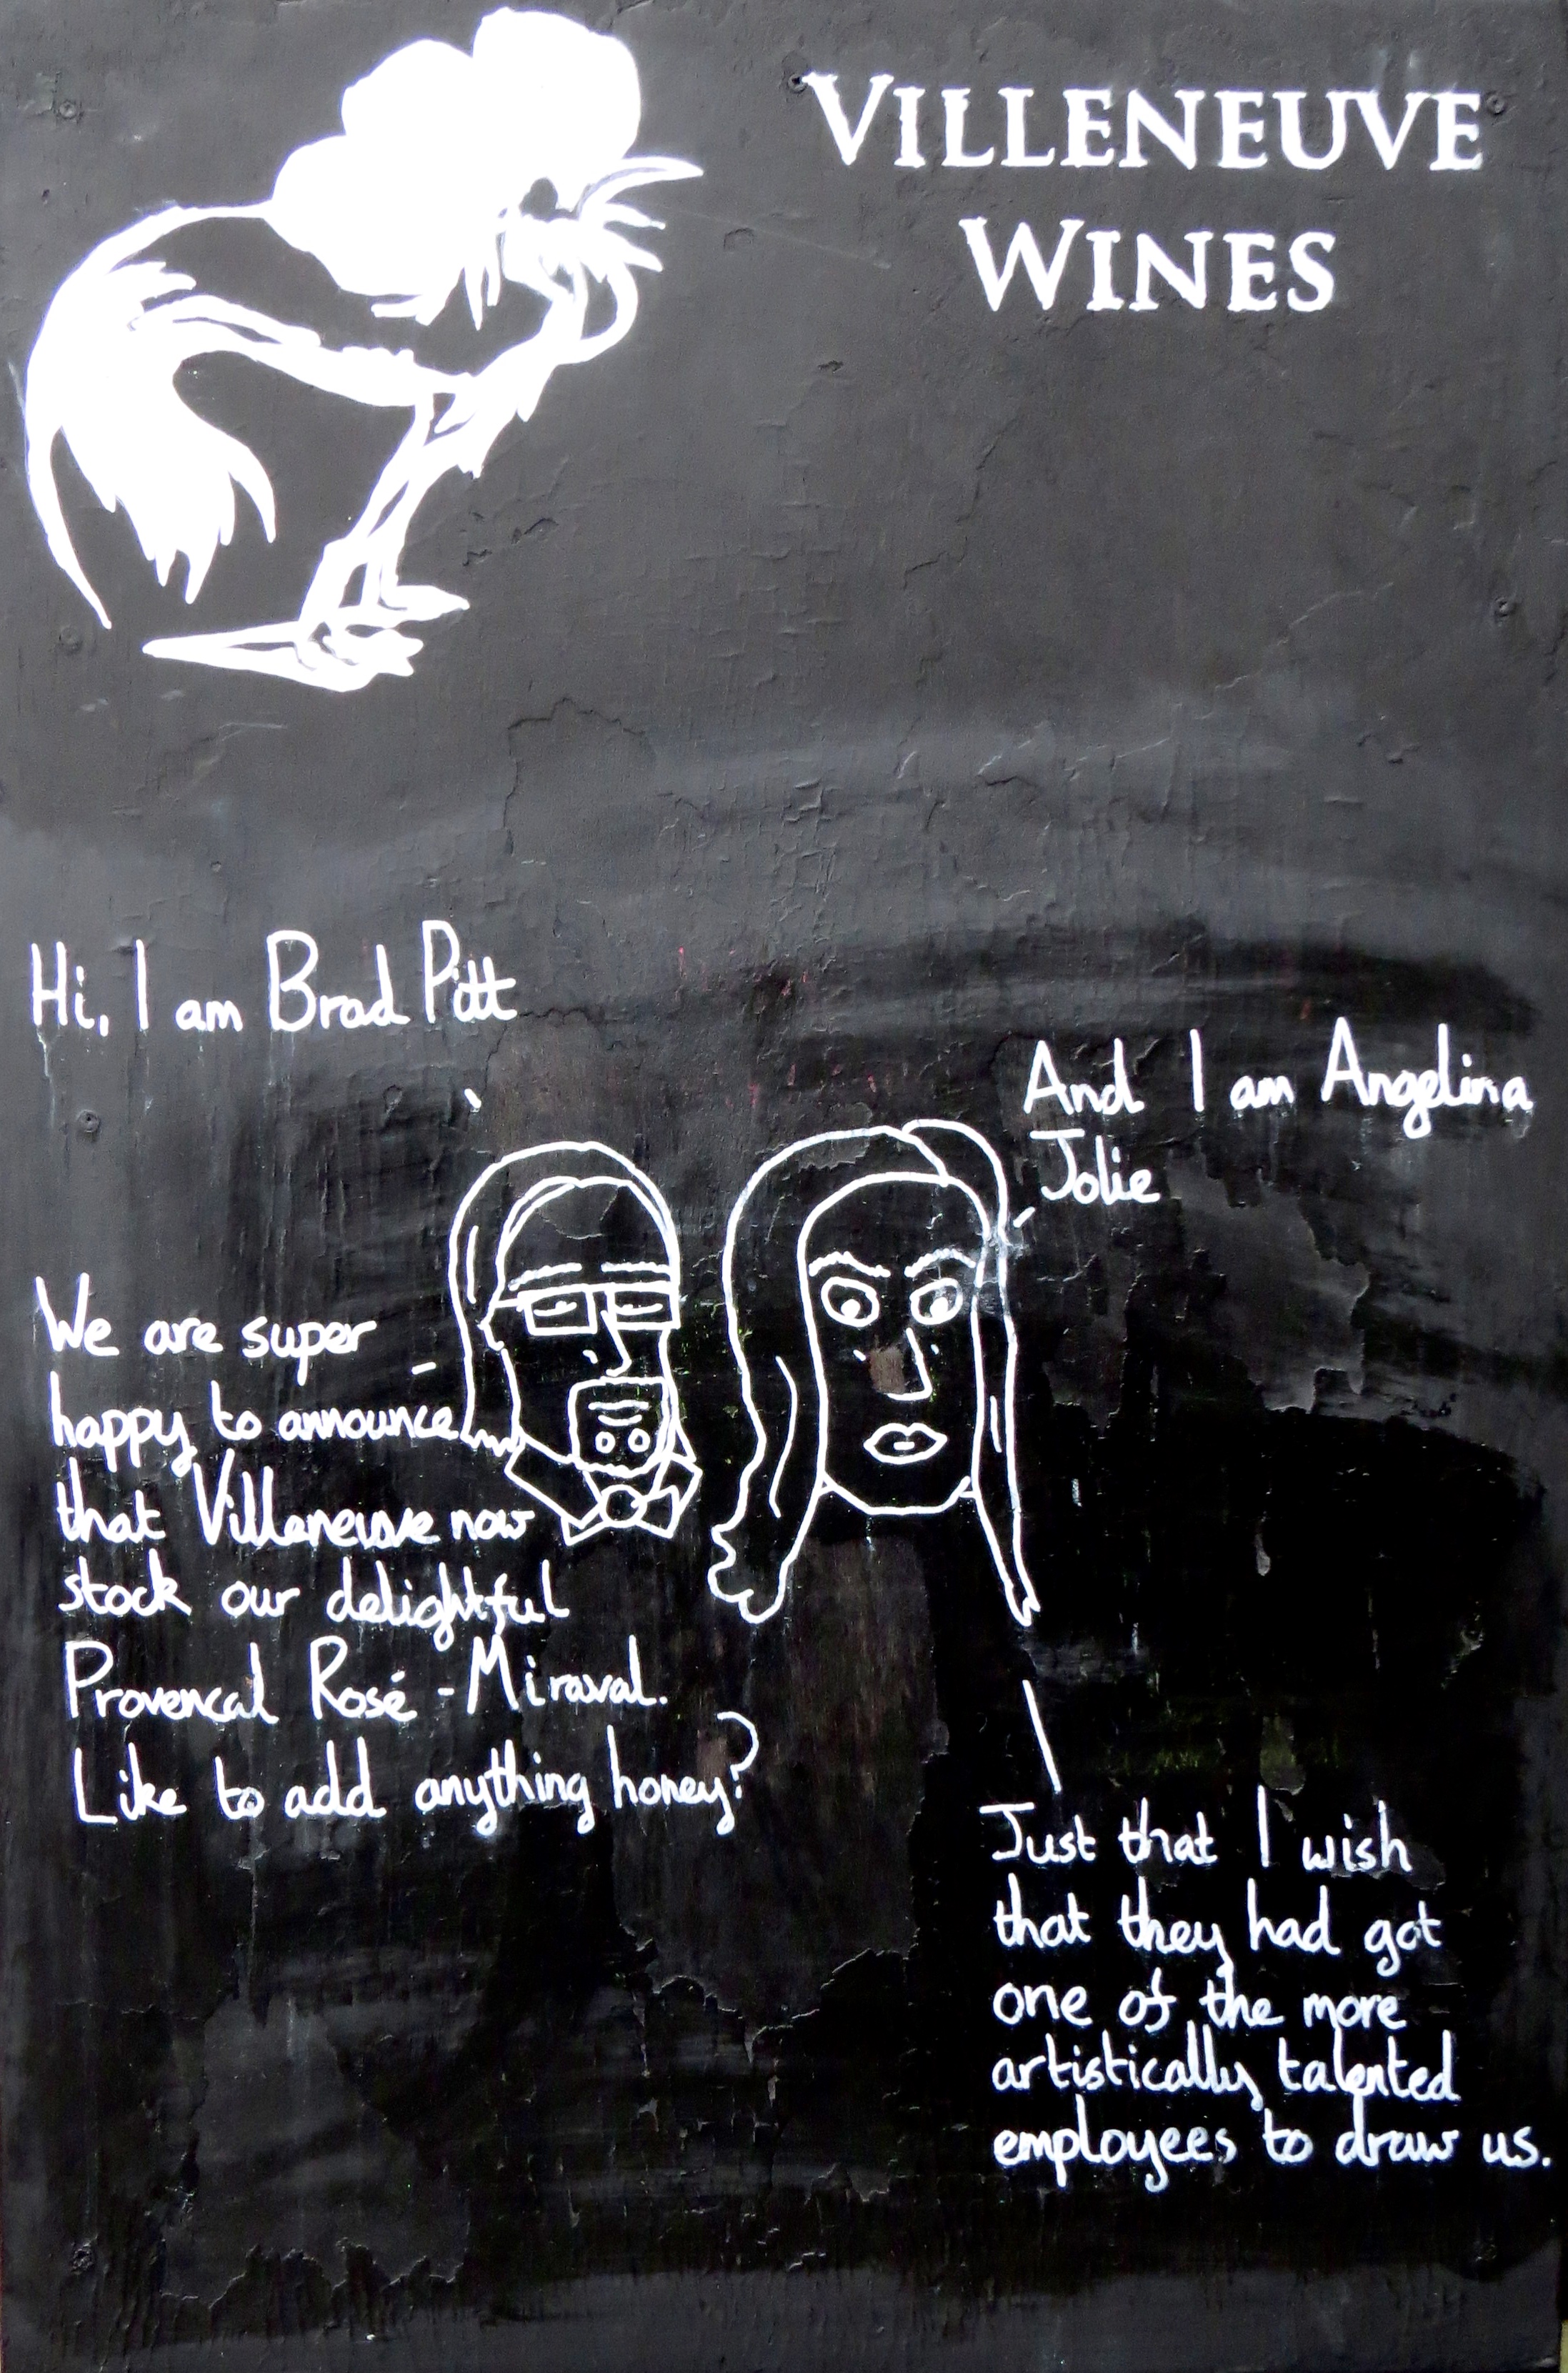 VILLENEUVE
WINES
Hi, I am Brad Pitt
And I am Angelina
Jolie
We are super
happy to announce
that Villeneuve now
stock our delightful
Provencal Rosé - Miraval.
Like to add anything honey?
Just that I wish
that they had got
one of the more
artistically talented
employees to draw us.